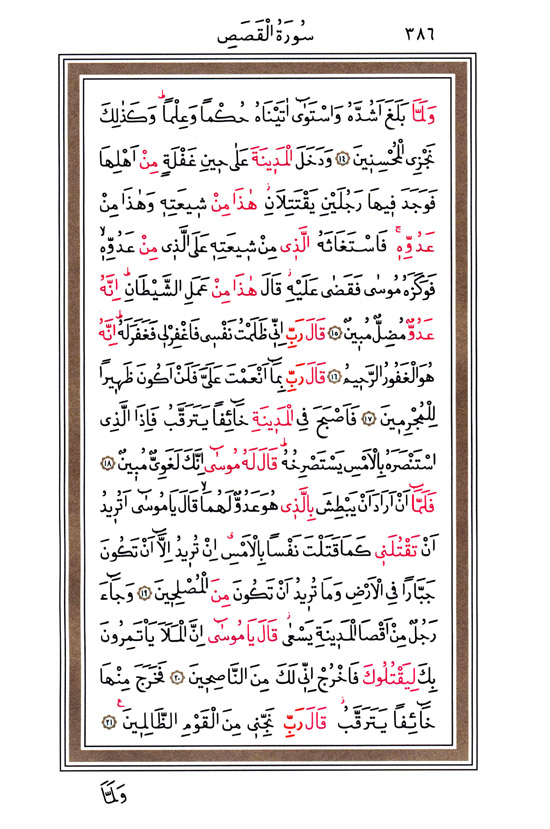 ٣٨٦ سُورَةُ الْقَصَصِ
وَلَمَّا بَلَغَ اَشُدَّهُ وَاسْتَوٰٓى اٰتَيْنَاهُ حُكْماً وَعِلْماًۜ وَكَذٰلِكَ
نَجْزِي الْمُحْسِنٖينَ ﴿١٤﴾ وَدَخَلَ الْمَدٖينَةَ عَلٰى حٖينِ غَفْلَةٍ مِنْ اَهْلِهَا
فَوَجَدَ فٖيهَا رَجُلَيْنِ يَقْتَتِلَانِۘ هٰذَا مِنْ شٖيعَتِهٖ وَهٰذَا مِنْ
عَدُوِّهٖۚ فَاسْتَغَاثَهُ الَّذٖي مِنْ شٖيعَتِهٖ عَلَى الَّذٖي مِنْ عَدُوِّهٖۙ
فَوَكَزَهُ مُوسٰى فَقَضٰى عَلَيْهِۘ قَالَ هٰذَا مِنْ عَمَلِ الشَّيْطَانِۜ اِنَّهُ
عَدُوٌّ مُضِلٌّ مُبٖينٌ ﴿١٥﴾ قَالَ رَبِّ اِنّٖي ظَلَمْتُ نَفْسٖي فَاغْفِرْ لٖي فَغَفَرَ لَهُۜ اِنَّهُ
هُوَ الْغَفُورُ الرَّحٖيمُ ﴿١٦﴾ قَالَ رَبِّ بِمَٓا اَنْعَمْتَ عَلَيَّ فَلَنْ اَكُونَ ظَهٖيراً
لِلْمُجْرِمٖينَ ﴿١٧﴾ فَاَصْبَحَ فِي الْمَدٖينَةِ خَٓائِفاً يَتَرَقَّبُ فَاِذَا الَّذِي
اسْتَنْصَرَهُ بِالْاَمْسِ يَسْتَصْرِخُهُۜ قَالَ لَهُ مُوسٰٓى اِنَّكَ لَغَوِيٌّ مُبٖينٌ ﴿١٨﴾
فَلَمَّٓا اَنْ اَرَادَ اَنْ يَبْطِشَ بِالَّذٖي هُوَ عَدُوٌّ لَهُمَاۙ قَالَ يَا مُوسٰٓى اَتُرٖيدُ
اَنْ تَقْتُلَنٖي كَمَا قَتَلْتَ نَفْساً بِالْاَمْسِۗ اِنْ تُرٖيدُ اِلَّٓا اَنْ تَكُونَ
جَبَّاراً فِي الْاَرْضِ وَمَا تُرٖيدُ اَنْ تَكُونَ مِنَ الْمُصْلِحٖينَ ﴿١٩﴾ وَجَٓاءَ
رَجُلٌ مِنْ اَقْصَا الْمَدٖينَةِ يَسْعٰىۘ قَالَ يَا مُوسٰٓى اِنَّ الْمَلَاَ يَأْتَمِرُونَ
بِكَ لِيَقْتُلُوكَ فَاخْرُجْ اِنّٖي لَكَ مِنَ النَّاصِحٖينَ ﴿٢٠﴾ فَخَرَجَ مِنْهَا
خَٓائِفاً يَتَرَقَّبُۘ قَالَ رَبِّ نَجِّنٖي مِنَ الْقَوْمِ الظَّالِمٖينَ ﴿٢١﴾ ع
وَلَمَّا